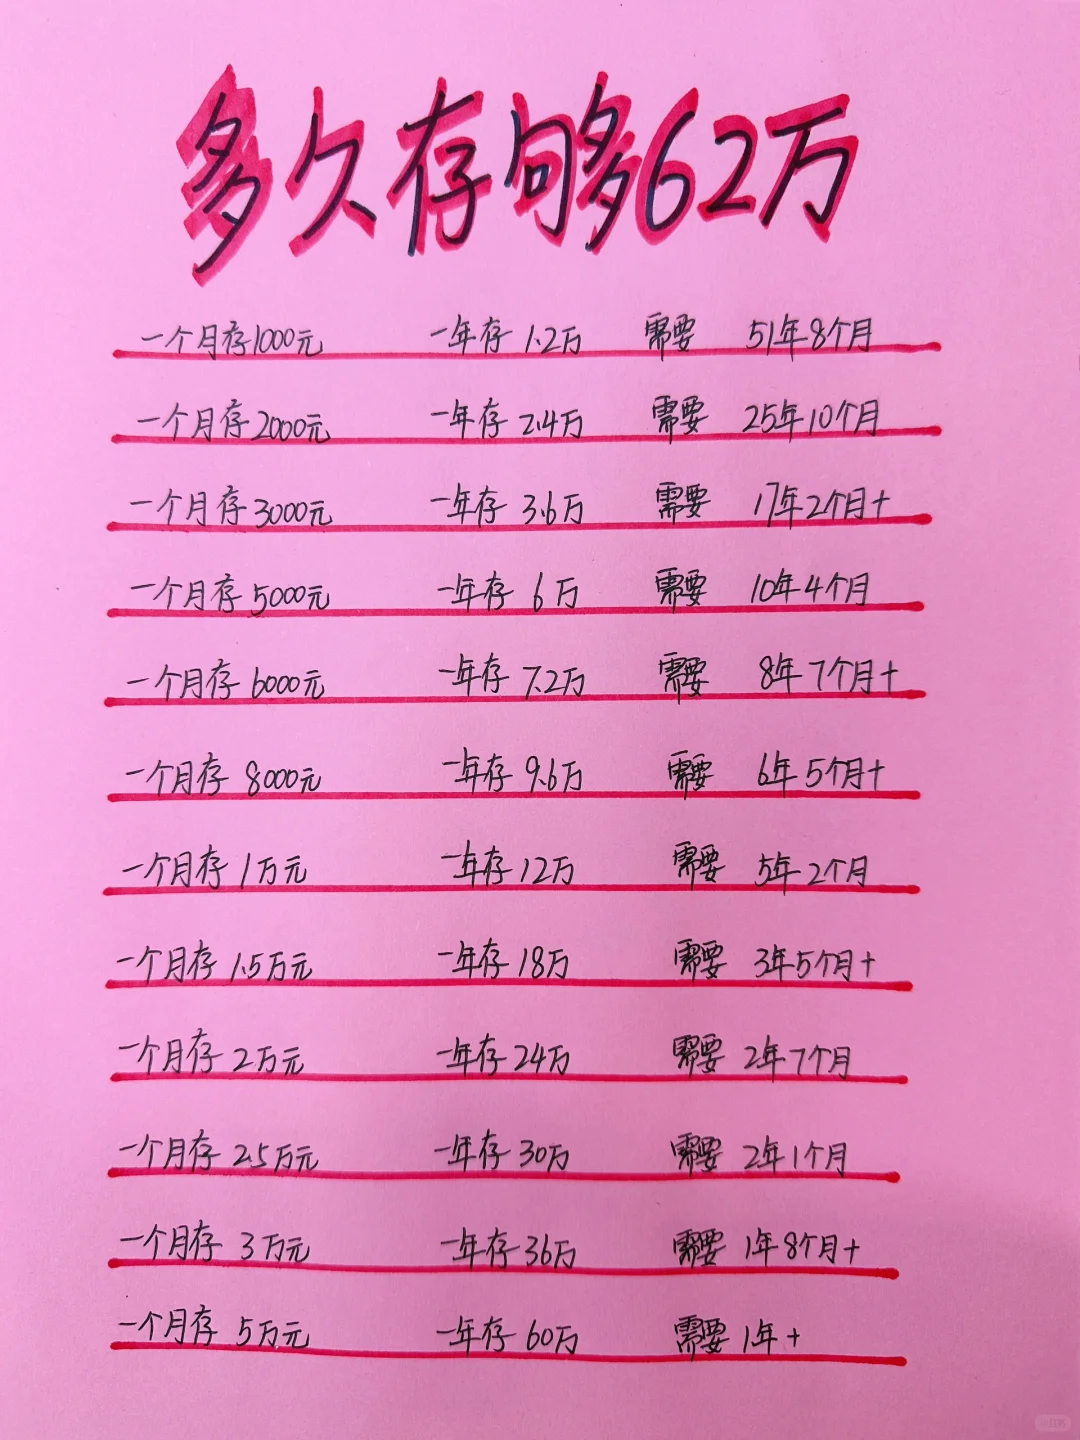 多久存够62万
一个月存1000元 一年存1.2万 需要 51年8个月
一个月存2000元 一年存2.4万 需要 25年10个月
一个月存3000元 一年存3.6万 需要 17年2个月+
一个月存5000元 一年存6万 需要 10年4个月
一个月存6000元 一年存7.2万 需要 8年7个月+
一个月存8000元 一年存9.6万 需要 6年5个月+
一个月存1万元 一年存12万 需要 5年2个月
一个月存1.5万元 一年存18万 需要 3年5个月+
一个月存2万元 一年存24万 需要 2年7个月
一个月存2.5万元 一年存30万 需要 2年1个月
一个月存3万元 一年存36万 需要 1年8个月+
一个月存5万元 一年存60万 需要 1年+